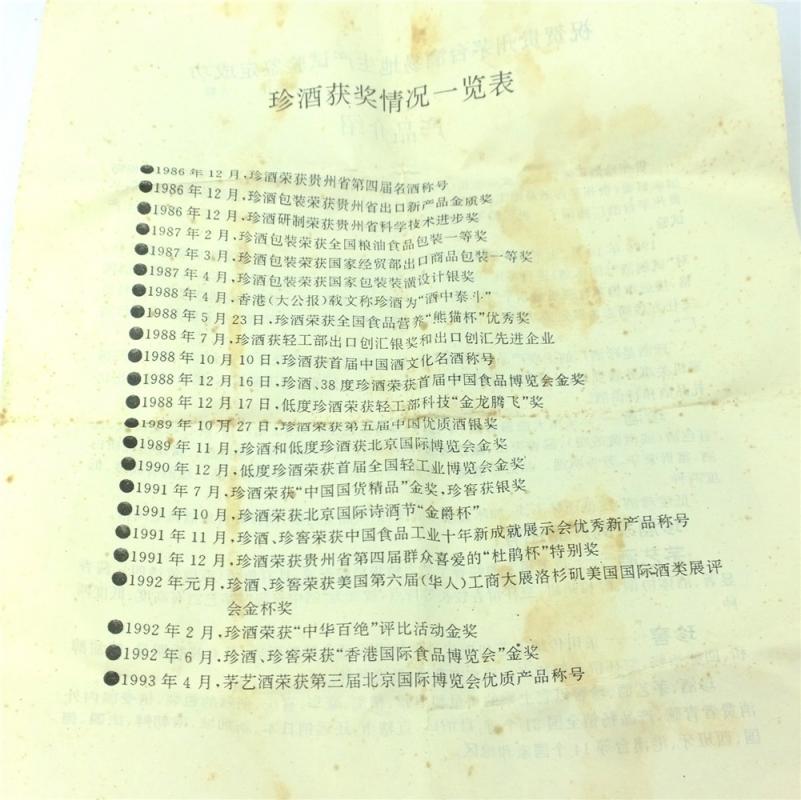 珍酒获奖情况一览表
●1986年12月,珍酒荣获贵州省第四届名酒称号
●1986年12月,珍酒包装荣获贵州省出口新产品金质奖
●1986年12月,珍酒研制荣获贵州省科学技术进步奖
●1987年2月,珍酒包装荣获全国粮油食品包装一等奖
●1987年3月,珍酒包装荣获国家经贸部出口商品包装一等奖
●1987年4月,珍酒包装荣获国家包装装潢设计银奖
●1988年4月,香港(大公报)载文称珍酒为“酒中泰斗”
●1988年5月23日,珍酒荣获全国食品营养“熊猫杯”优秀奖
●1988年7月,珍酒获轻工部出口创汇银奖和出口创汇先进企业
●1988年10月10日,珍酒获首届中国酒文化名酒称号
●1988年12月16日,珍酒、38度珍酒荣获首届中国食品博览会金奖
●1988年12月17日,低度珍酒荣获轻工部科技“金龙腾飞”奖
●1989年10月27日,珍酒荣获第五届中国优质酒银奖
●1989年11月,珍酒和低度珍酒获北京国际博览会金奖
●1990年12月,低度珍酒荣获首届全国轻工业博览会金奖
●1991年7月,珍酒荣获“中国国货精品”金奖,珍窖获银奖
●1991年10月,珍酒荣获北京国际诗酒节“金爵杯”
●1991年11月,珍酒、珍窖荣获中国食品工业十年新成就展示会优秀新产品称号
●1991年12月,珍酒荣获贵州省第四届群众喜爱的“杜鹃杯”特别奖
●1992年元月,珍酒、珍窖荣获美国第六届(华人)工商大展洛杉矶美国国际酒类展评
会金杯奖
●1992年2月,珍酒荣获“中华百绝”评比活动金奖
●1992年6月,珍酒、珍窖荣获“香港国际食品博览会”金奖
●1993年4月,茅艺酒荣获第三届北京国际博览会优质产品称号